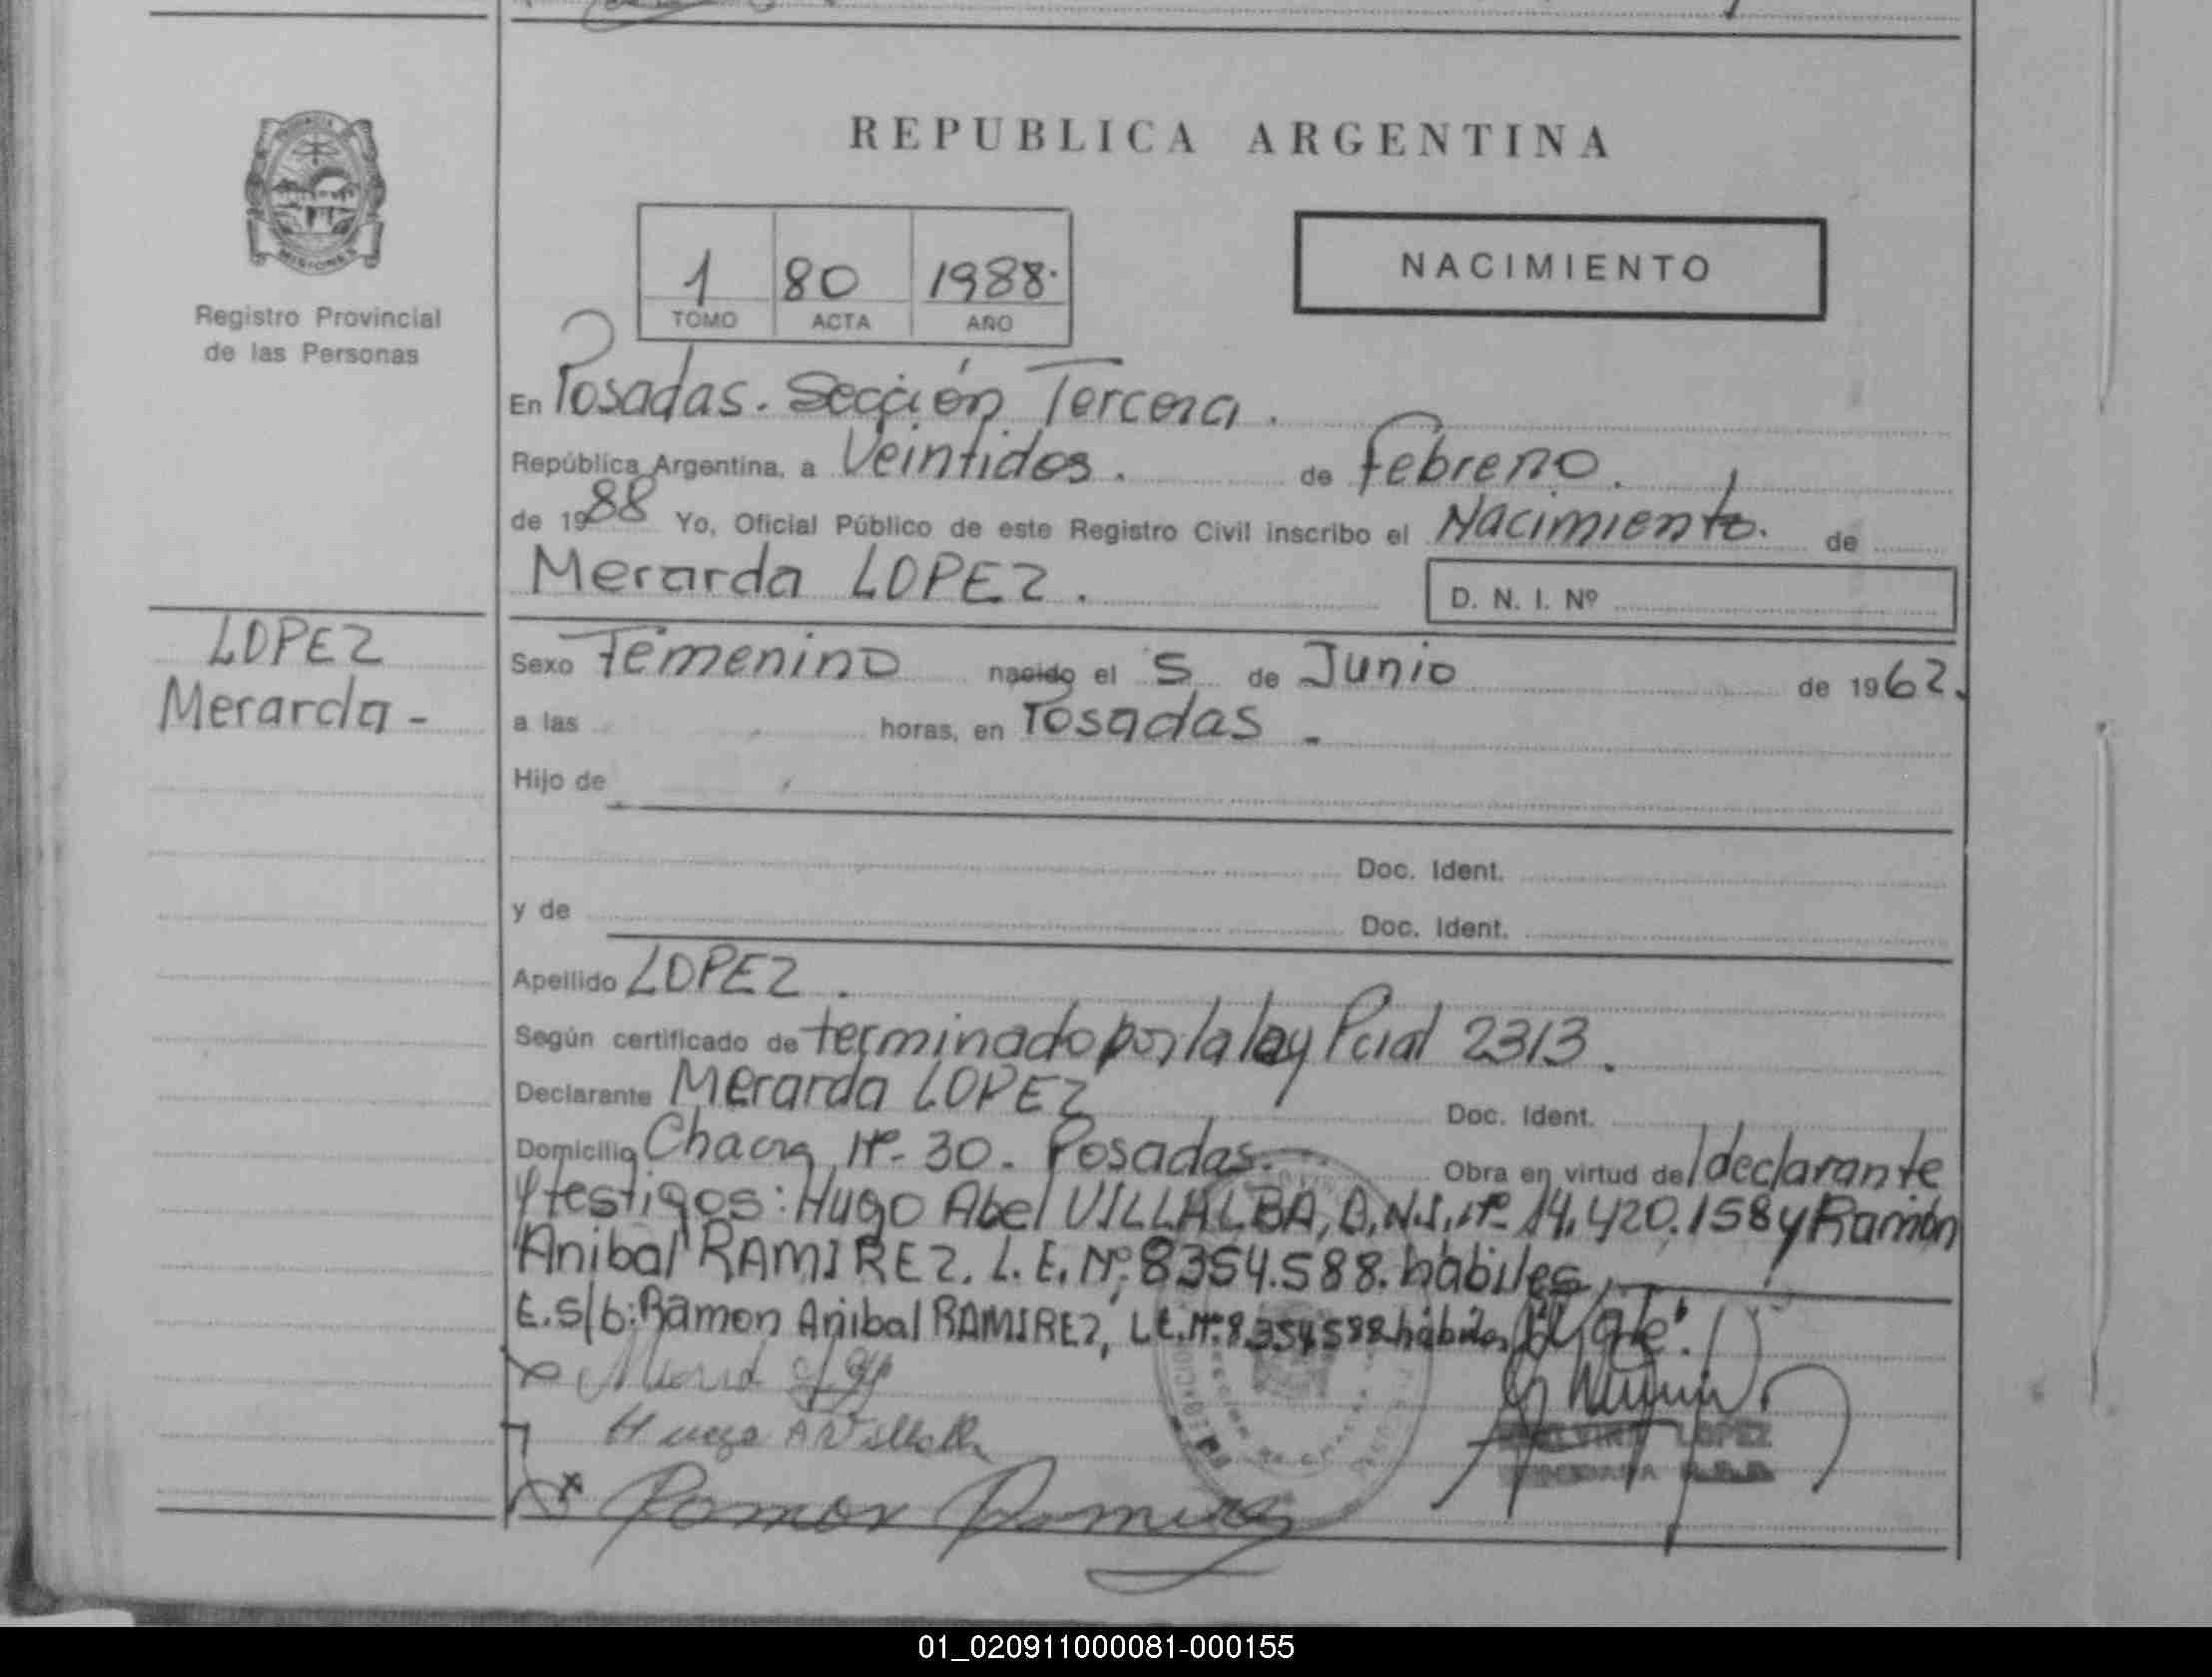 REPUBLICA ARGENTINA
1 80 1988.
TOMO ACTA AÑO
NACIMIENTO
Registro Provincial
de las Personas
En Posadas. Sección Tercera.
República Argentina, a Veintidos. de Febrero.
de 1988 Yo, Oficial Público de este Registro Civil inscribo el Nacimiento. de
Merarda LOPEZ.
D. N. I. Nº
LOPEZ
Merarda -
Sexo Femenino nacido el 5 de Junio de 1962.
a las horas, en Posadas -
Hijo de
Doc. Ident.
y de Doc. Ident.
Apellido LOPEZ.
Según certificado de terminado por la ley Pcial 2313.
Declarante Merarda LOPEZ Doc. Ident.
Domicilio Chacra Nº- 30. Posadas. Obra en virtud del declarante
y testigos: Hugo Abel VILLALBA, D.N.I. Nº 14.420.158 y Ramón
Anibal RAMIREZ. L.E. Nº 8354.588. hábiles
E.s/b: Ramon Anibal RAMIREZ, L.E. Nº 8.354588 hábiles Vale.
Hugo A Villalba
Ramon Ramirez
LOPEZ
01_020911000081-000155